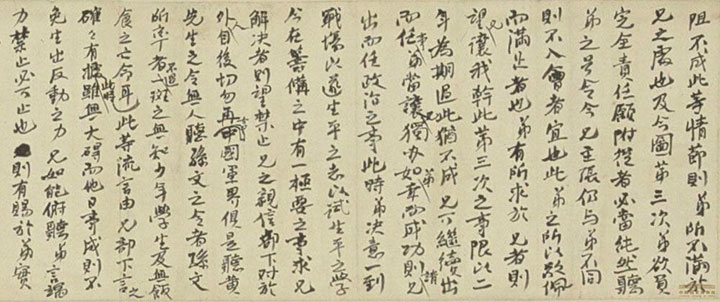 阻不成此等情節則弟所不滿於
兄之處也及今圖第三次弟欲負
完全責任願附從者必當純然聽
弟之号令今兄主張仍与弟不同
則不入會者宜也此弟之所以敬佩
而滿足者也弟有所求於兄者則
望讓我幹此第三次之事限以二
年為期過此猶不成兄可繼續出
而任事弟當讓兄獨办如幸而弟成功則請兄
出而任政治之事此時弟決意一到
戰場以遂生平之志以試生平之學
今在籌備之中有一極要之事求兄
解決者則望禁止兄之親信部下對於
外人自後切勿再言中國軍界俱是聽黄
先生之令無人聽孫文之令者孫文
所率者不過一班之無知少年學生及無飯
食之亡命耳此等流言由兄部下言之
確々有據此時雖無大碍而他日事成則不
免生出反動之力兄如能俯聽弟言竭
力禁止必可止也則有賜於弟實